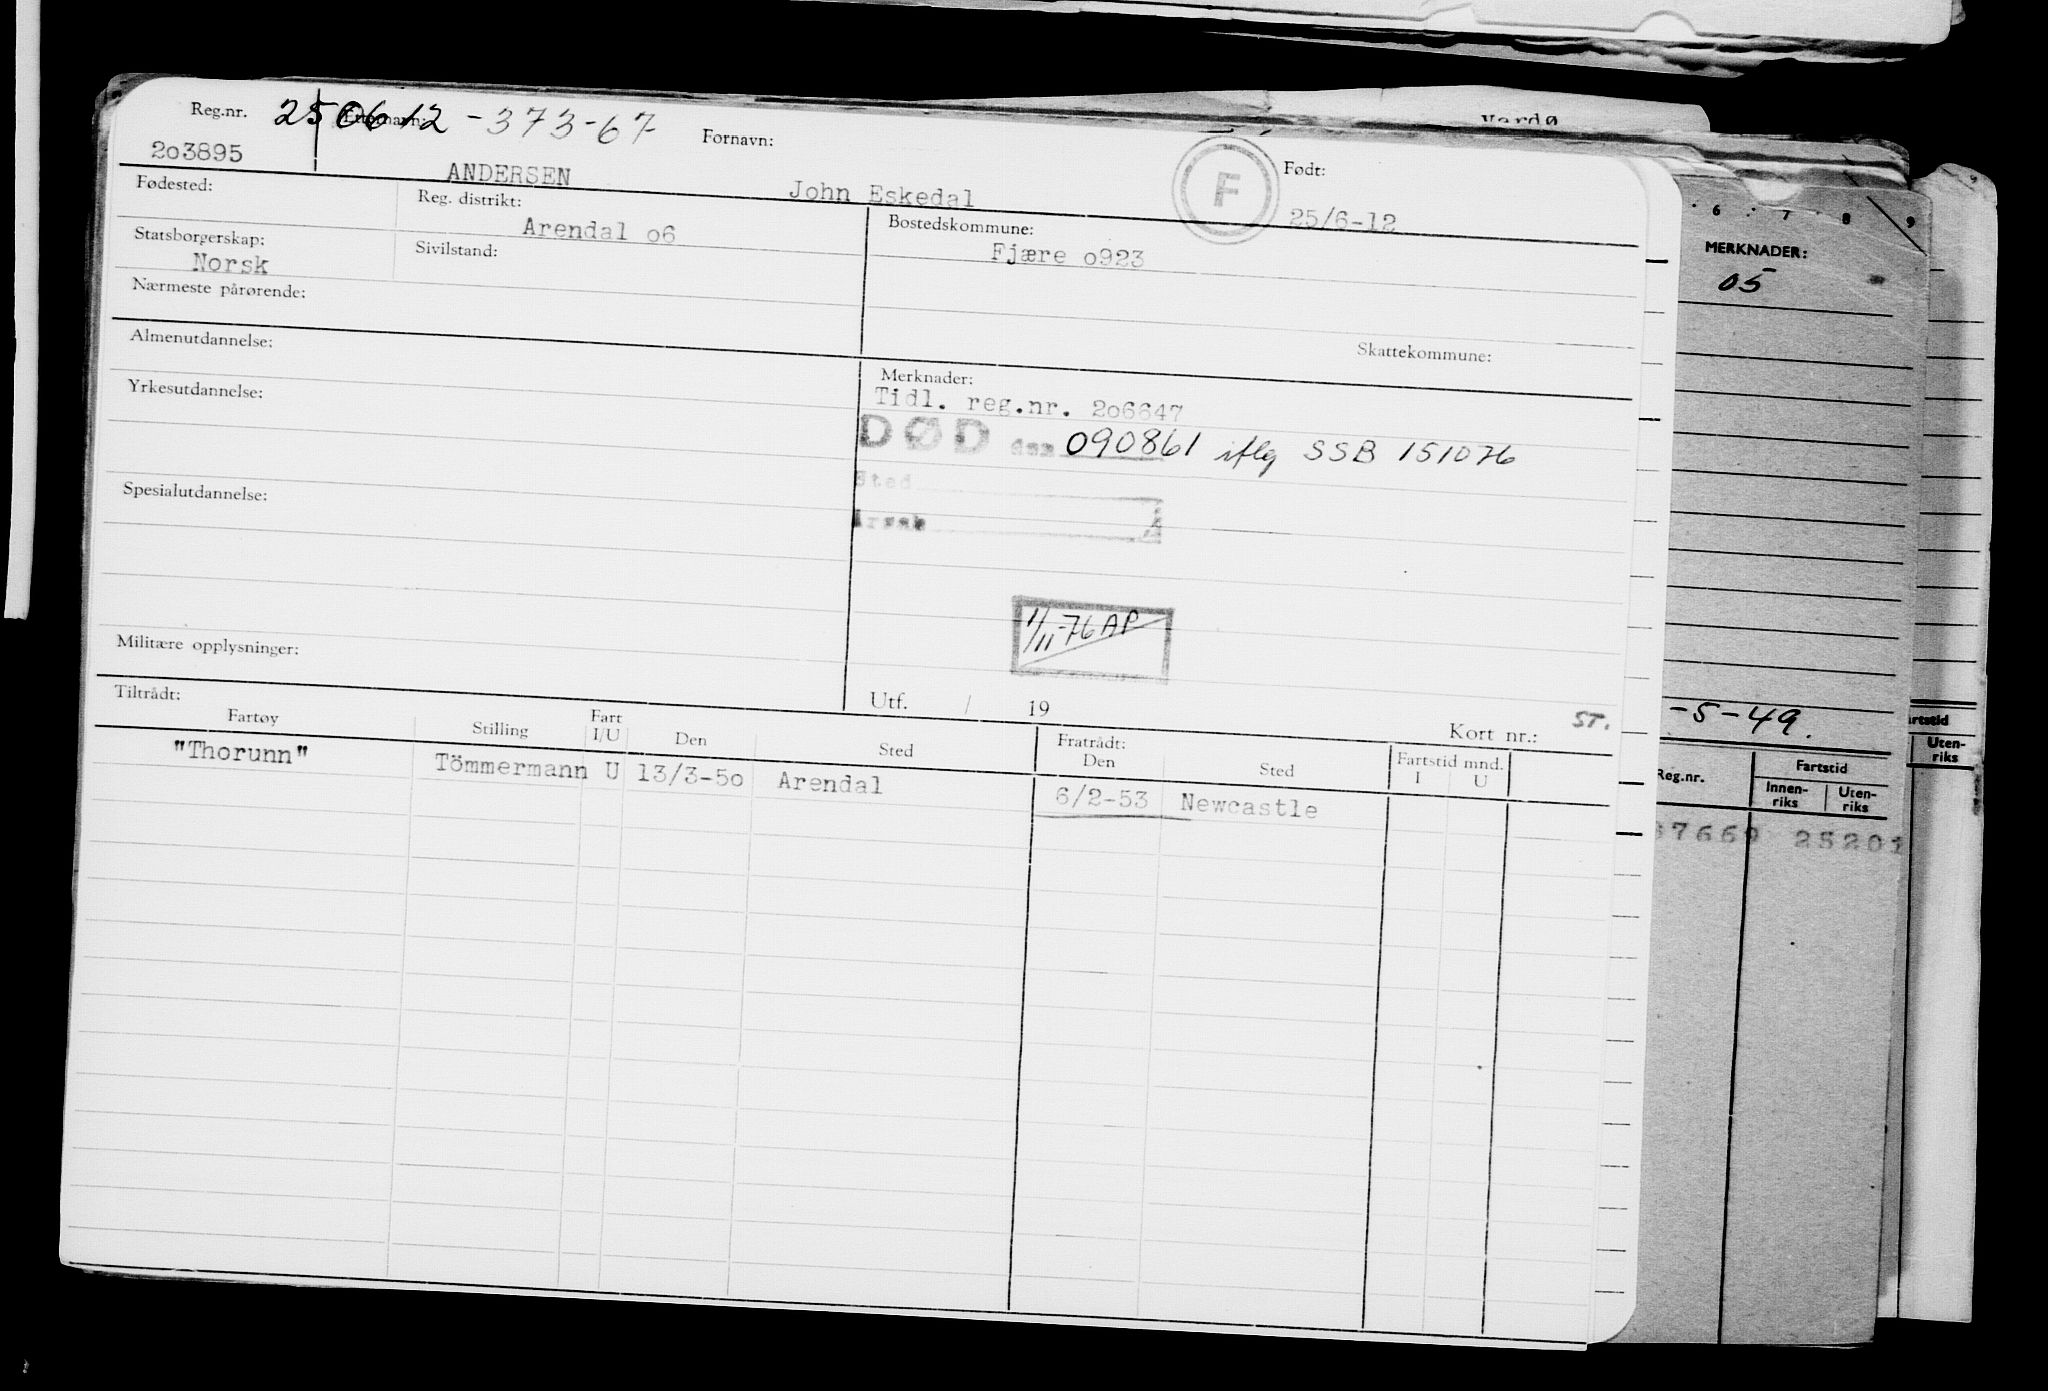 Vardø
Reg.nr. 250612-373-67 Fornavn: Født:
203895 ANDERSEN John Eskedal F 25/6-12
Fødested: Reg. distrikt: Bostedskommune:
Arendal o6 Fjære o923
Statsborgerskap: Sivilstand:
Norsk
Nærmeste pårørende:
Almenutdannelse: Skattekommune:
Yrkesutdannelse: Merknader:
Tidl. reg.nr. 2o6647
DØD den 090861 iflg SSB 151076
Spesialutdannelse: Sted
Årsak
1/11-76 AP
Militære opplysninger:
Utf. / 19 Kort nr.: ST.
Tiltrådt: Fratrådt:
Fartøy Stilling Fart I/U Den Sted Den Sted Fartstid mnd. I U
"Thorunn" Tömmermann U 13/3-5o Arendal 6/2-53 Newcastle
6 7 8 9
MERKNADER:
05
-5-49.
Reg.nr. Fartstid
Innen-
riks Uten-
riks
67669 25201
Uten-
riks